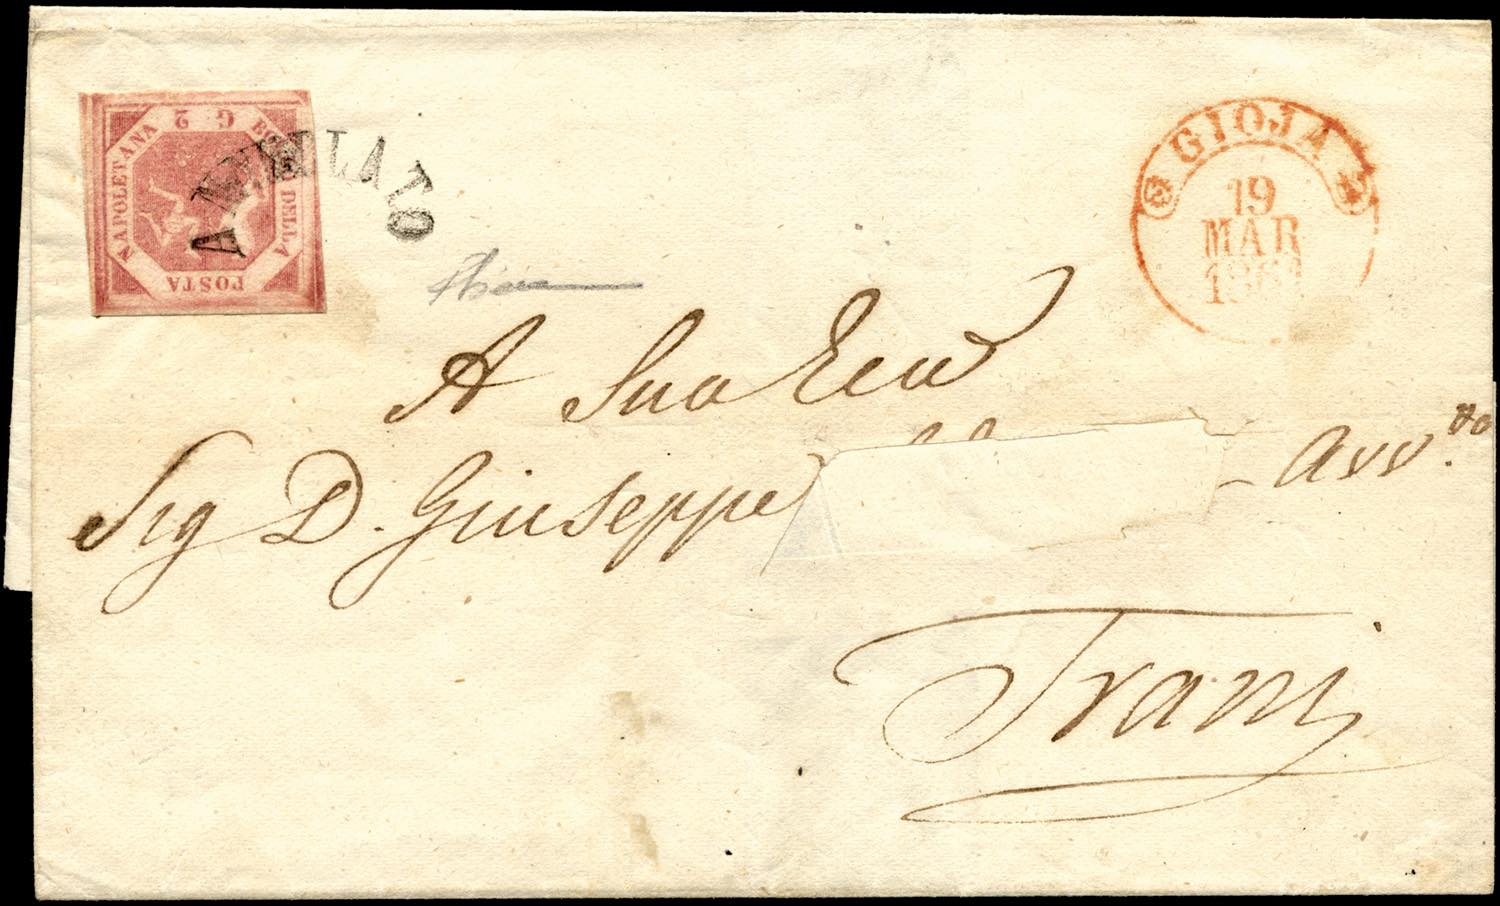 G 2
BOLLO DELLA
POSTA
NAPOLETANA
ANNULLATO
GIOJA
19
MAR
A Sua Ecc
Sig D. Giuseppe Avv.to
Trani